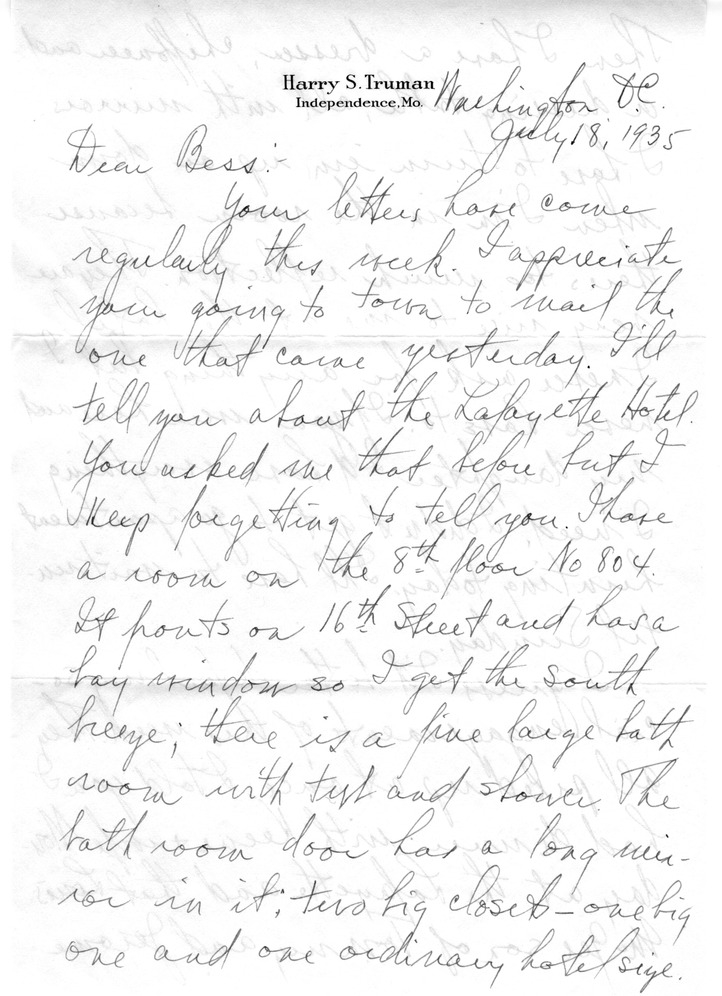 Harry S. Truman
Independence, Mo.
Washington D.C.
July 18, 1935
Dear Bess:-
Your letters have come
regularly this week. I appreciate
your going to town to mail the
one that came yesterday. I'll
tell you about the Lafayette Hotel.
You asked me that before but I
keep forgetting to tell you. I have
a room on the 8th floor No 804.
It fronts on 16th Street and has a
bay window so I get the south
breeze; there is a fine large bath
room with tub and shower. The
bath room door has a long mir-
ror in it; two big closets - one big
one and one ordinary hotel size.